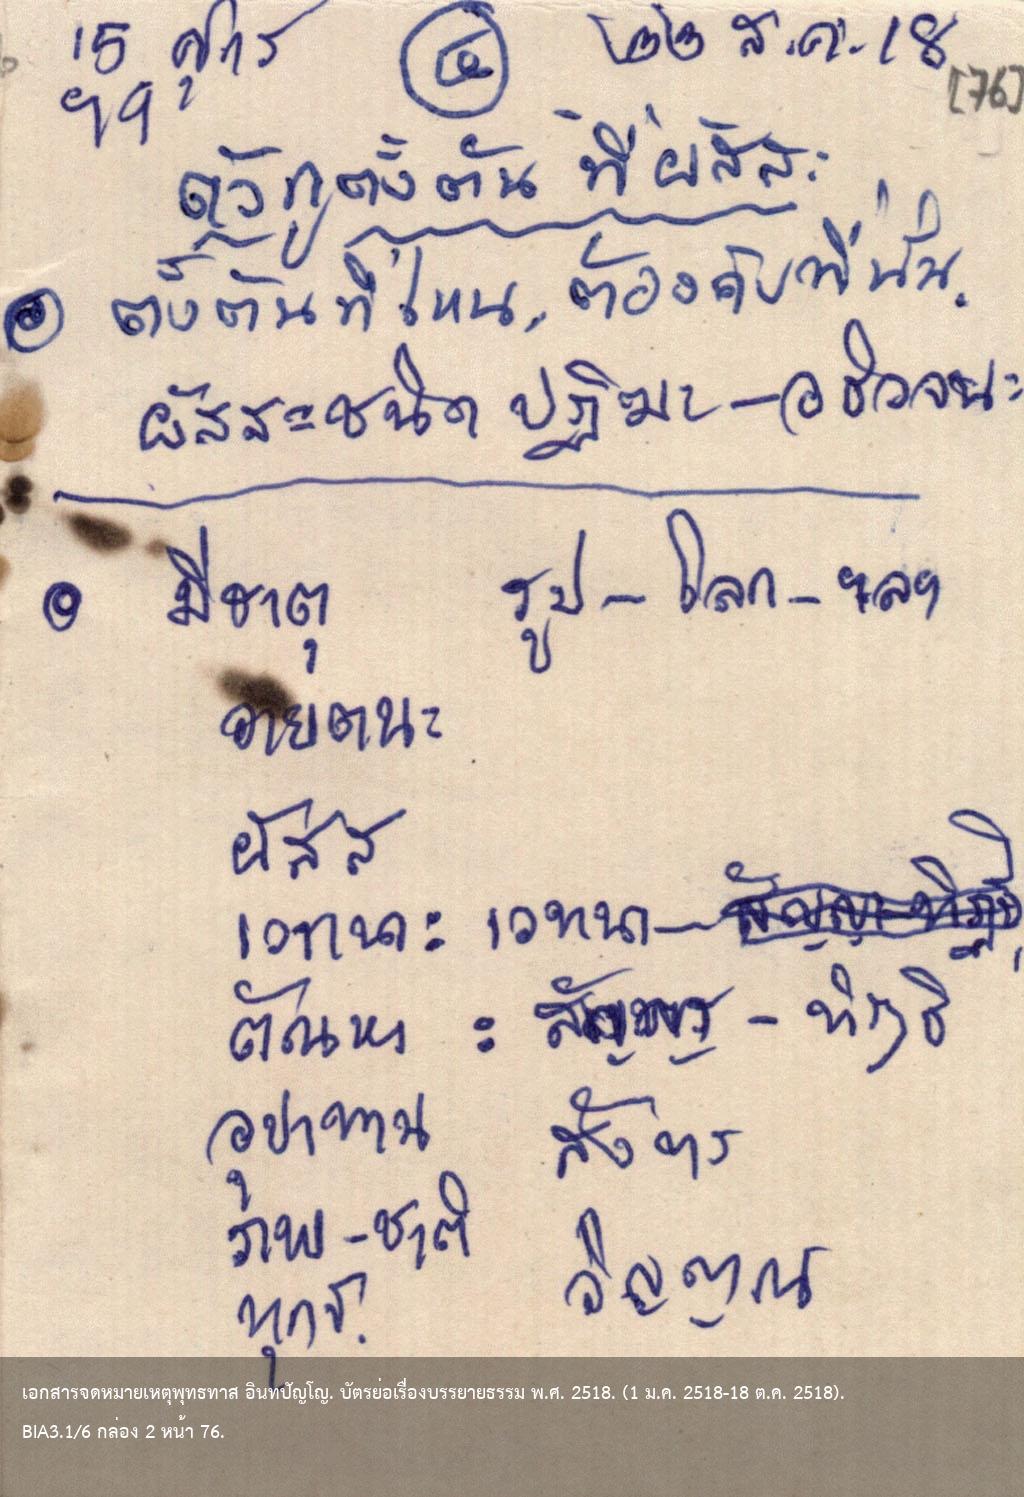 15 ศุกร์ ๔ ๒๒ ส.ค. 18
ฯ9 [76]
ตัวกูตั้งต้น ที่ผัสสะ
ตั้งต้นที่ไหน, ต้องดับที่นั่น.
ผัสสะชนิด ปฏิฆะ – อธิวจนะ
มีธาตุ รูป – โลก – ฯลฯ
อายตนะ
ผัสส
เวทนา: เวทนา – สัญญา-ทิฏฐิ
ตัณหา : สัญญา – ทิฏฐิ
อุปาทาน สังขาร
ภพ – ชาติ
ทุกข์. วิญญาณ
เอกสารจดหมายเหตุพุทธทาส อินทปัญโญ. บัตรย่อเรื่องบรรยายธรรม พ.ศ. 2518. (1 ม.ค. 2518-18 ต.ค. 2518).
BIA3.1/6 กล่อง 2 หน้า 76.